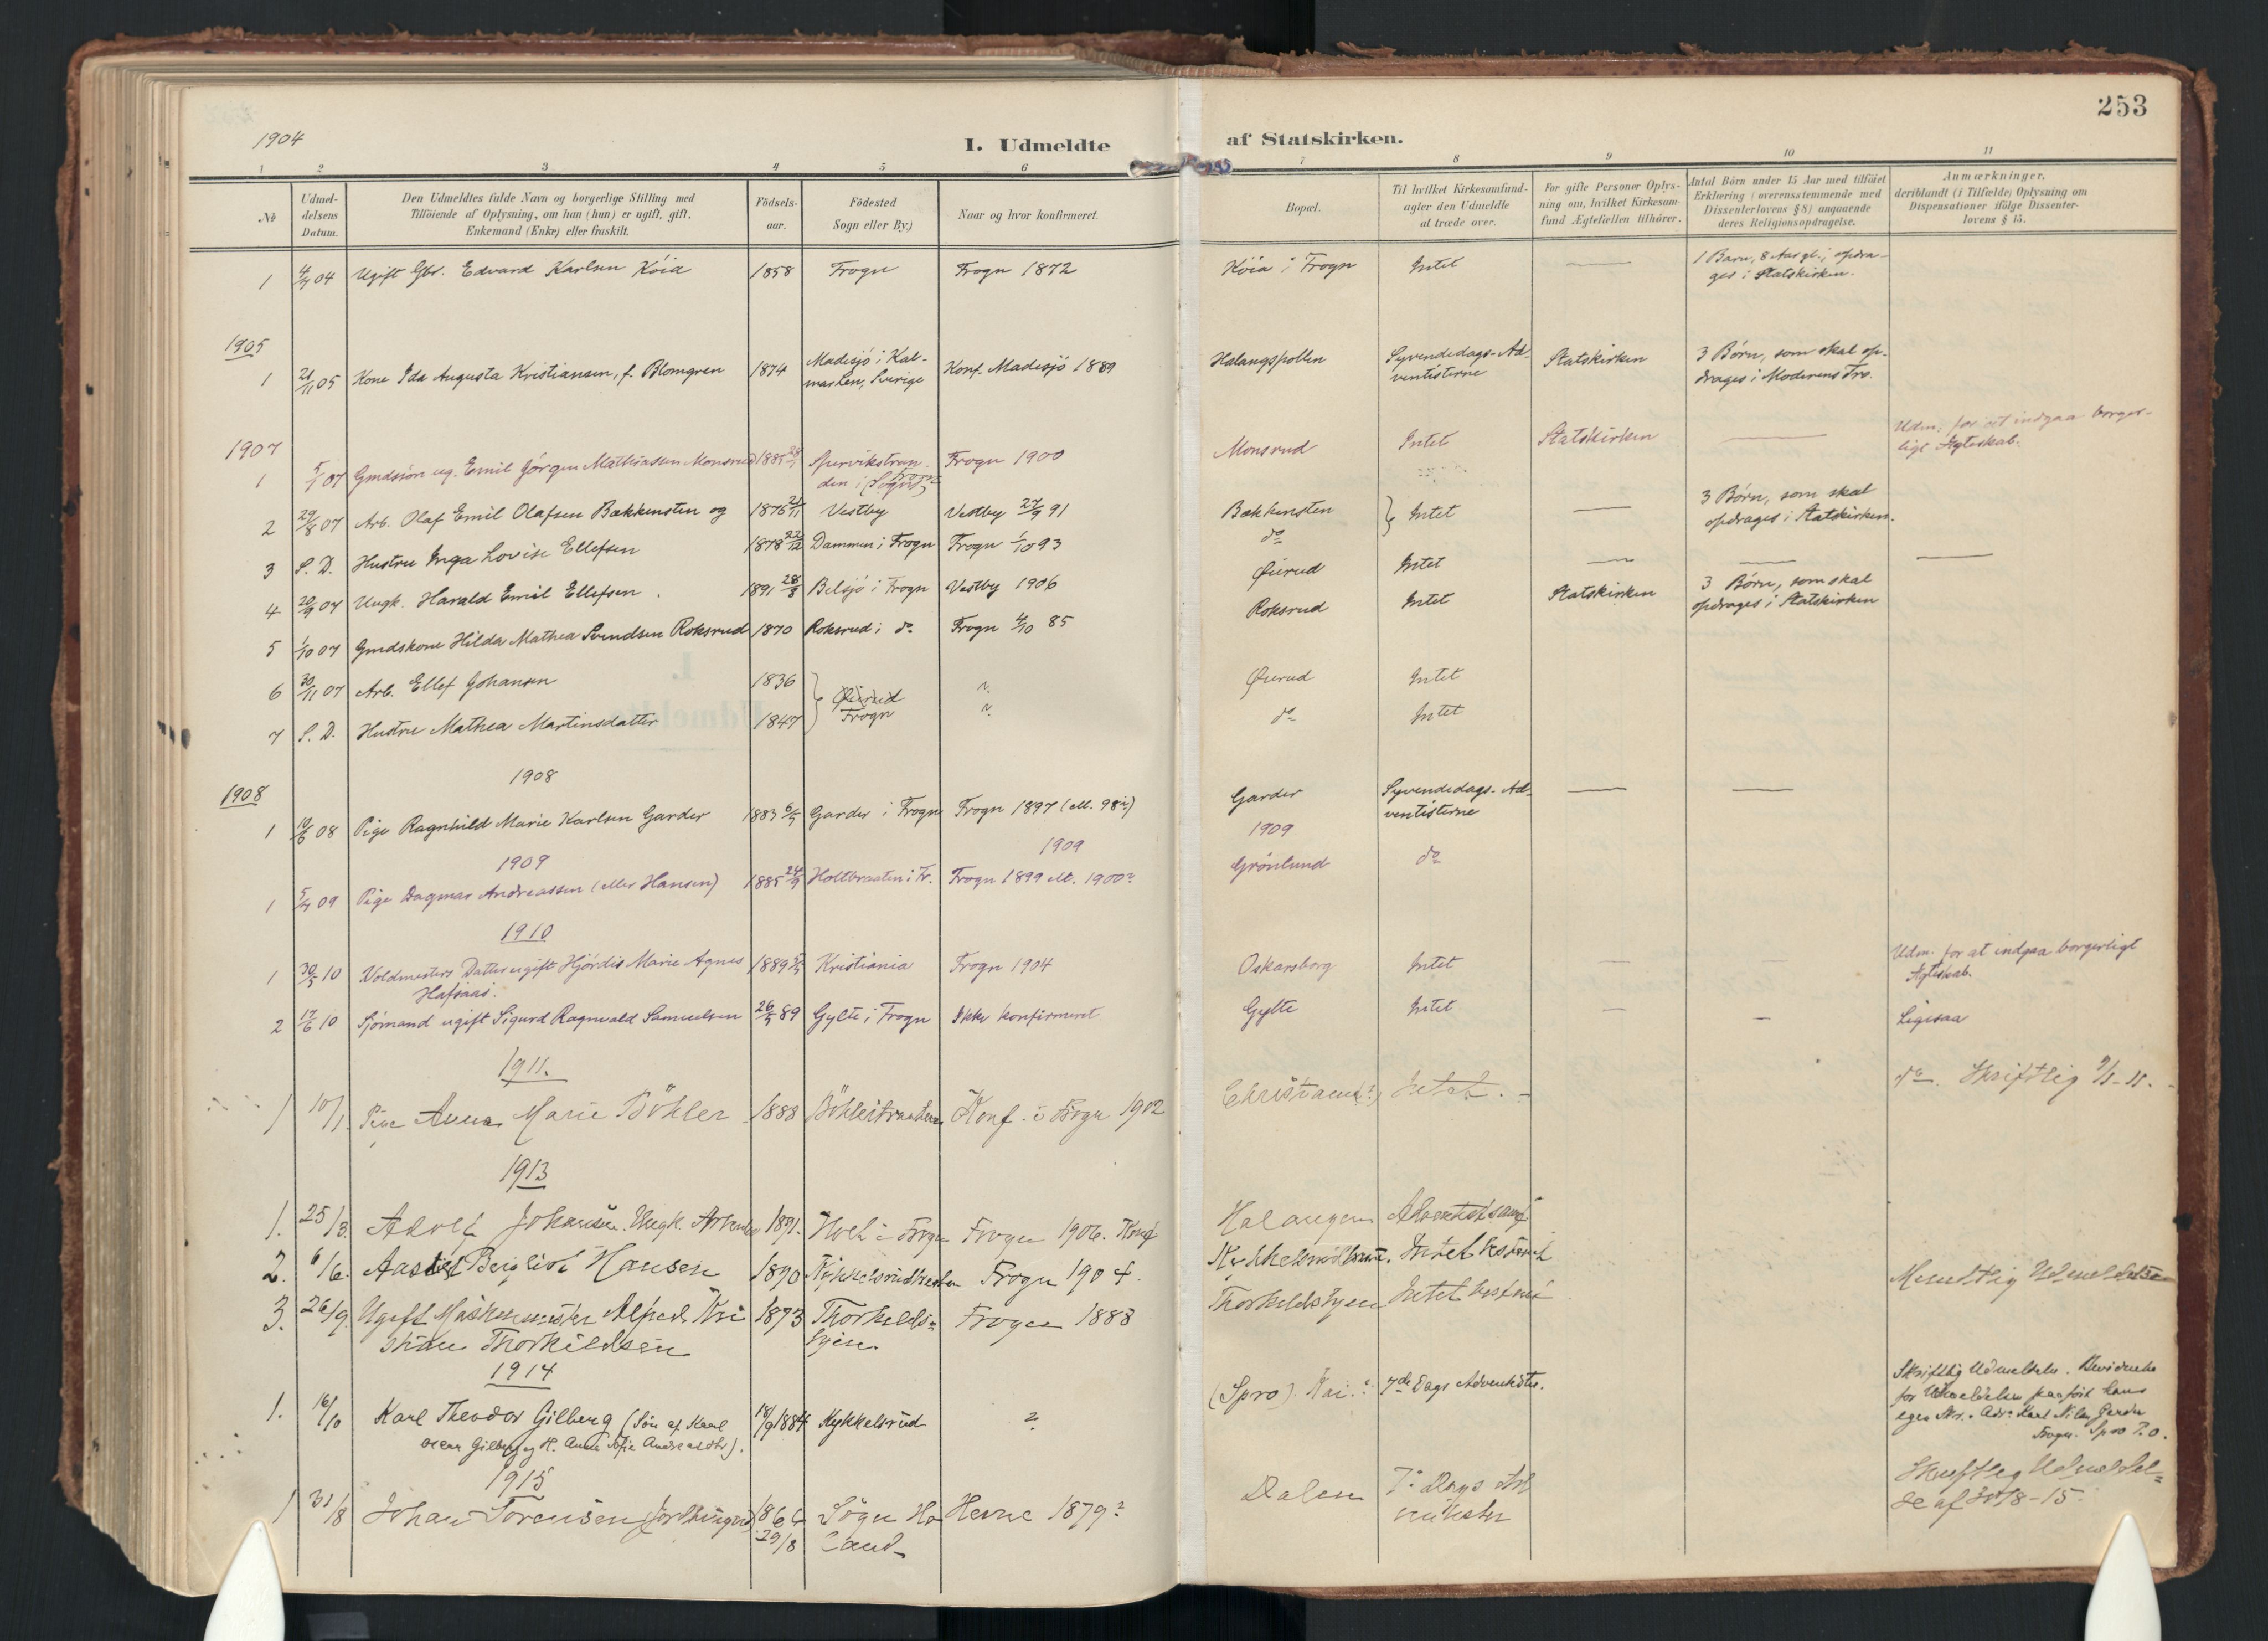 253
1904
I. Udmeldte af Statskirken.
1 2 3 4 5 6 7 8 9 10 11
No
Udmel-
delsens
Datum.
Den Udmeldtes fulde Navn og borgerlige Stilling med
Tilföiende af Oplysning, om han (hun) er ugift, gift,
Enkemand (Enke) eller fraskilt.
Födsels-
aar.
Födested
Sogn eller By.)
Naar og hvor konfirmeret.
Bopæl.
Til hvilket Kirkesamfund-
agter den Udmeldte
at træde over.
For gifte Personer Oplys-
ning om, hvilket Kirkesam-
fund Ægtefællen tilhörer.
Antal Börn under 15 Aar med tilföiet
Erklæring (overensstemmende med
Dissenterlovens § 8) angaaende
deres Religionsopdragelse.
Anmærkninger.
deriblandt (i Tilfælde) Oplysning om
Dispensationer ifölge Dissenter-
lovens § 15.
1 4/7 04 Ugift Gbr. Edvard Karlsen Köia 1858 Frogn Frogn 1872 Köia i Frogn Intet — 1 Barn, 8 Aar gl.; opdra-
ges i Statskirken.
1905
1 21/11 05 Kone Ida Augusta Kristiansen, f. Blomgren 1874 Madesjö i Kal-
mar Len, Sverige Konf. Madesjö 1889 Halangspollen Syvendedags-Ad-
ventisterne Statskirken 3 Börn, som skal op-
drages i Moderens Tro.
1907
1 5/1 07 Gmdsön ug. Emil Jörgen Mathiasen Monsrud 1885 Spervikstran-
den i Frogn Frogn 1900 Monsrud Intet Statskirken — Udm. for at indgaa borger-
ligt Ægteskab.
2 29/8 07 Arb. Olaf Emil Olafsen Bakkensten og 1876 21/11 Vestby Vestby 27/9 91 Bakkensten } Intet — 3 Börn, som skal
opdrages i Statskirken.
3 S. D. Hustru Inga Lovise Ellefsen 1878 22/12 Dammen i Frogn Frogn 1/10 93 do
4 20/9 07 Ungk. Harald Emil Ellefsen. 1891 28/8 Belsjö i Frogn Vestby 1906 Øierud Intet — — —
5 1/10 07 Gmdskone Hilda Mathea Svendsen Roksrud 1870 Roksrud i do Frogn 4/10 85 Roksrud Intet Statskirken 3 Börn, som skal
opdrages i Statskirken
6 30/11 07 Arb. Ellef Johansen 1836 } Øierud ? Øierud Intet
7 S. D. Hustru Mathea Martinsdatter 1847 Frogn ? do Intet
1908
1908
1 10/6 08 Pige Ragnhild Marie Karlsen Garder 1883 6/5 Garder i Frogn Frogn 1897 (ell. 98?) Garder Syvendedags-Ad-
ventisterne — —
1909 1909 1909
1 5/4 09 Pige Dagmar Andreassen (eller Hansen) 1885 24/9 Holtbraaten i Fr. Frogn 1899 ell. 1900? Grönlund do
1910
1 30/5 10 Voldmesters Datter ugift Hjördis Marie Agnes
Hafsaas. 1889 Kristiania Frogn 1904 Oskarsborg Intet — — Udm. for at indgaa borgerligt
Ægteskab.
2 17/6 10 Sjömand ugift Sigurd Ragnvald Samuelsen 26/5 89 Gylte i Frogn Ikke konfirmeret Gylte Intet — — Ligesaa
1911.
1 10/1 Pige Anna Marie Böhler 1888 Böhlerbraaten Konf. i Frogn 1902 Christiania Intet. — do. Skriftlig 9/1-11.
1913
1. 25/3. Adolf Johansen. Ungk. Arbeider 1891. Holt i Frogn Frogn 1906. Konf Halangen Adventistsamf
2. 6/6. Aasta Bergliot Hansen 1890 Kykkelsrudhesten Frogn 1904. Intet bestemt Mundtlig Udmeldelse
3. 26/9. Ugift Maskinmester Alfred Kri
stian Thorkildsen 1873 Thorkelds-
byen. Frogn 1888 Thorkeldsbyen Intet bestemt
1914
1. 16/10 Karl Theodor Gilberg (Sön af Karl
Oscar Gilberg og H. Anna Sofie Andreasdtr). 18/9 1884 Kykkelsrud ? (Spro) 7de Dags Adventister. Skriftlig Udmeldelse.
for Udmeldelsen paaført hans
egen Adr: Karl Nilsen Garder
Frogn. Spro P.o.
1915
1 31/8 Johan Torensen 1866
29/8 Sögn Ha
land Hevne 1879? Dalen 7' Dags Ad
ventister Skriftlig Udmeldel-
se af 30/8-15.